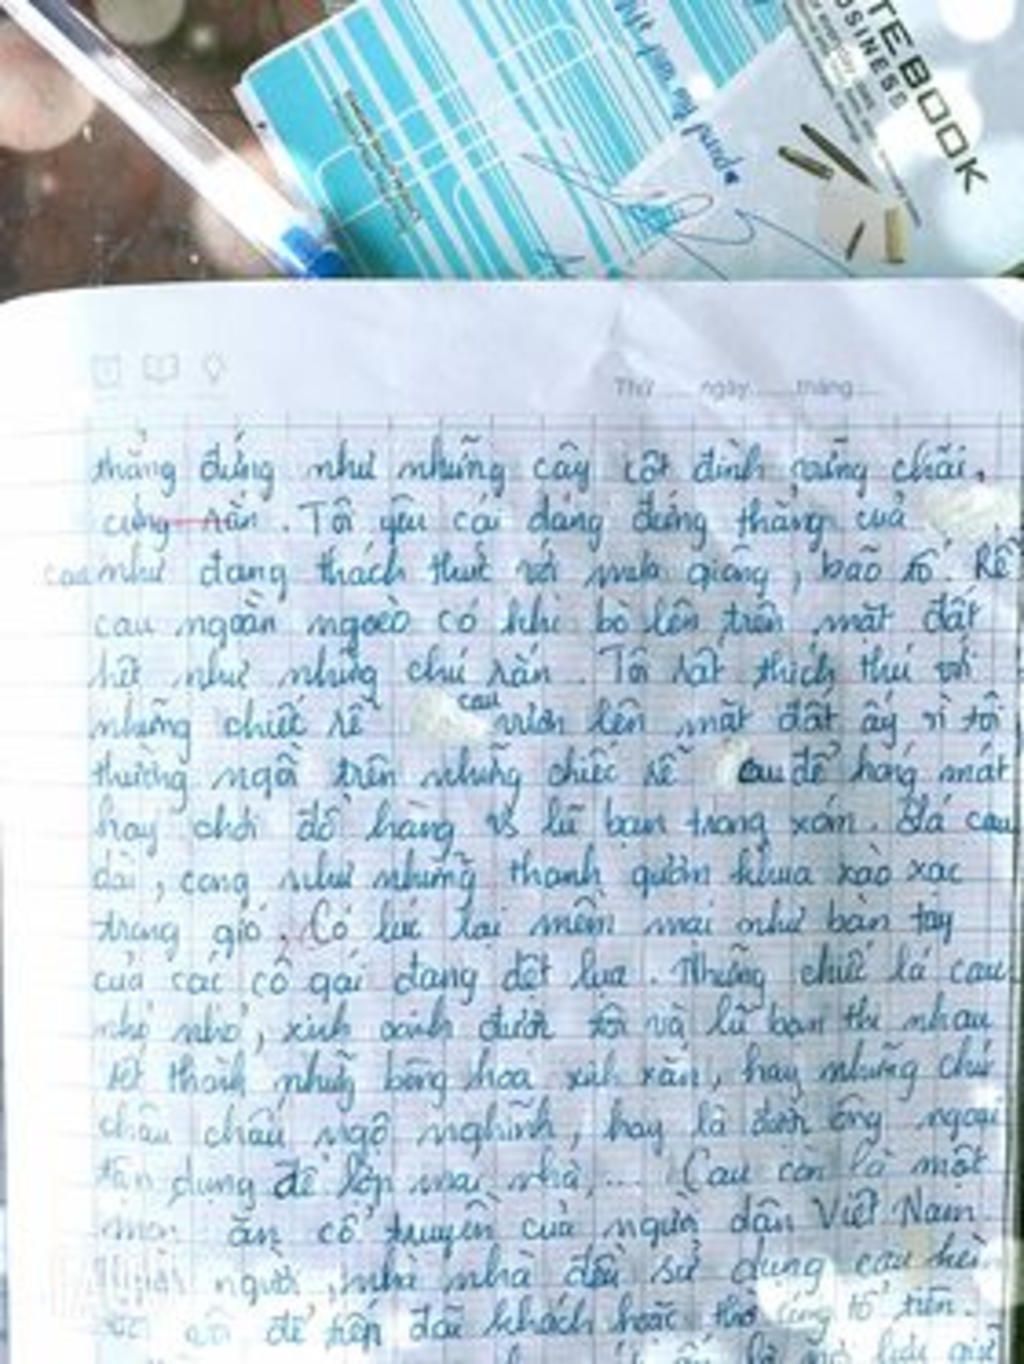 TEBOOK
BUSINESS
Thứ ..... ngày ...... tháng .....
thẳng đứng như những cây cột đình vững chãi,
cứng rắn. Tôi yêu cái dáng đứng thẳng của
cau như đang thách thức với mưa giông, bão tố. Rễ
cau ngoằn ngoèo có khi bò lên trên mặt đất
hệt như những chú rắn. Tôi rất thích thú với
những chiếc rễ cau vươn lên mặt đất ấy vì tôi
thường ngồi trên những chiếc rễ cau để hóng mát
hay chơi đồ hàng vs lũ bạn trong xóm. Lá cau
dài, cong như những thanh gươm khua xào xạc
trong gió. Có lúc lại mềm mại như bàn tay
của các cô gái đang dệt lụa. Những chiếc lá cau
nhỏ nhỏ, xinh xinh được tôi và lũ bạn thi nhau
kết thành những bông hoa xinh xắn, hay những chú
châu chấu ngộ nghĩnh, hay là được ông ngoại
tận dụng để lợp mái nhà,... Cau còn là một
món ăn cổ truyền của người dân Việt Nam.
người, nhà nhà đều sử dụng cau
để tiếp đãi khách hoặc thờ cúng tổ tiên.